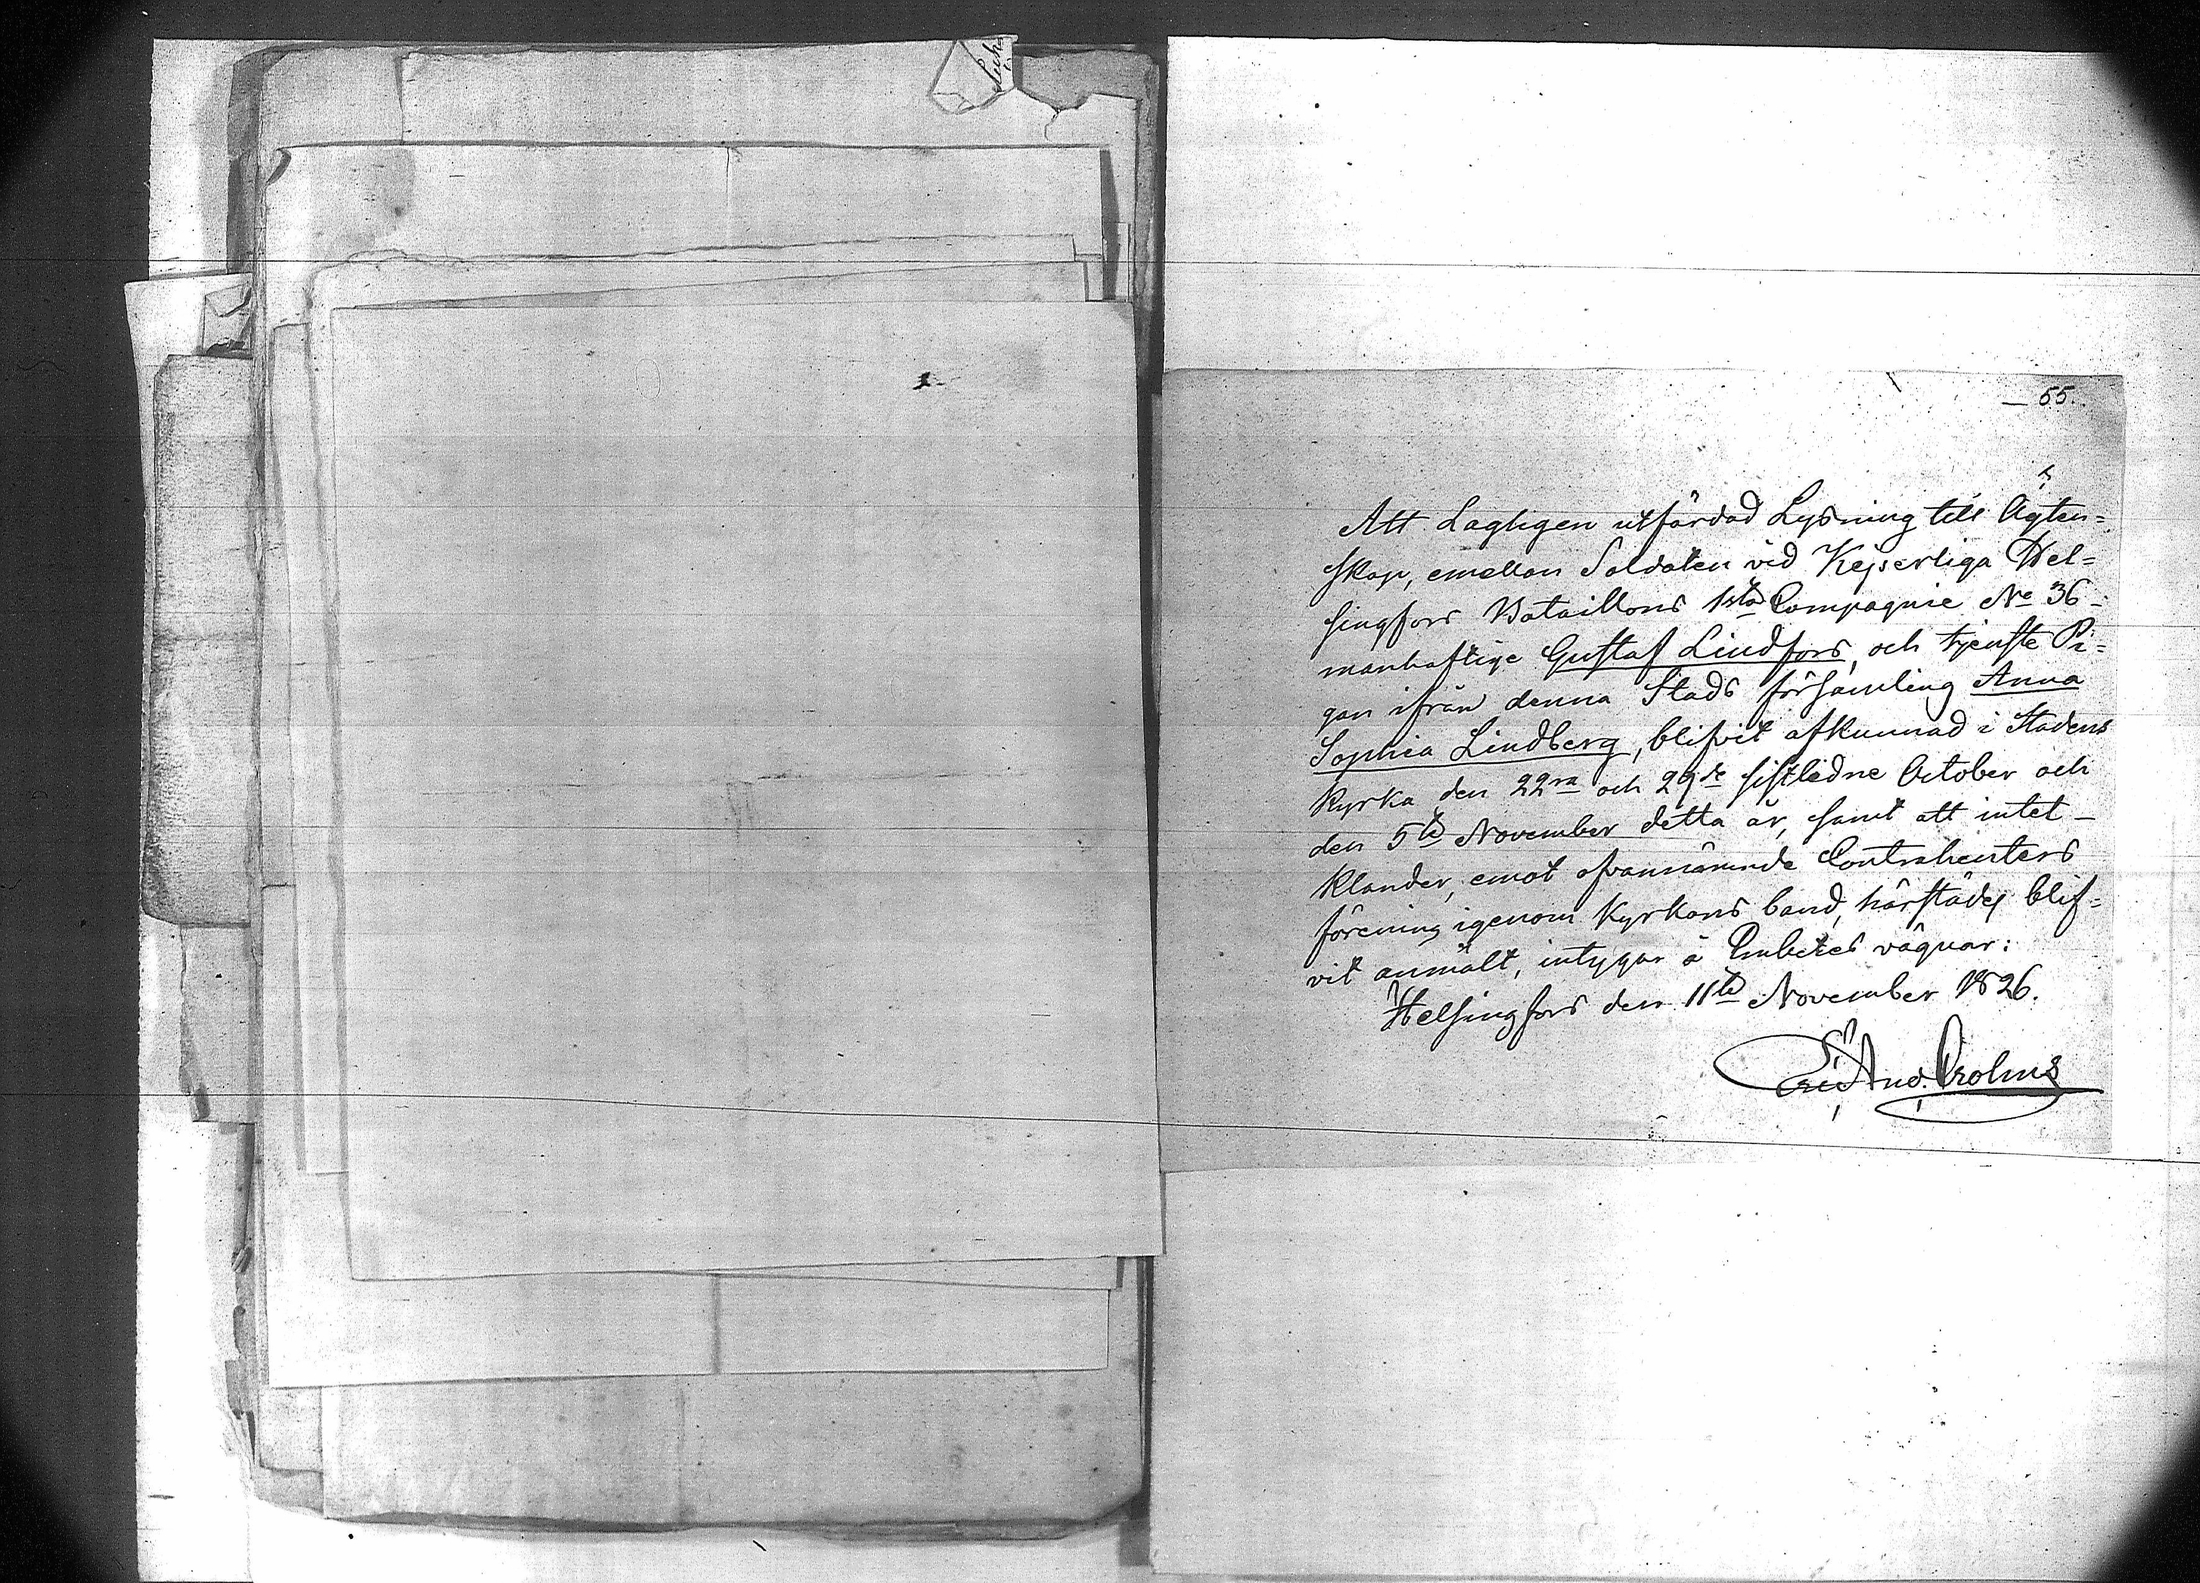 55.
Att Lagligen utfärdad Lysning till Ägten=
skap, emellan Soldaten vid Kejserliga Hel=
singfors Bataillons 1sta Compagnie No 36
manhaftige Gustaf Lindfors, och tjenste Pi=
gan ifrån denna Stads församling Anna
Sophia Lindberg, blifvit afkunnad i Stadens
Kyrka den 22ra och 29de sistledne October och
den 5te November detta år, samt att intet
klander, emot ofvannämnde Contrahenters
förening igenom Kyrkans band, härstädes blif=
vit anmält, intygar å Embetes vägnar:
Helsingfors den 11te November 1826.
And. Crolms